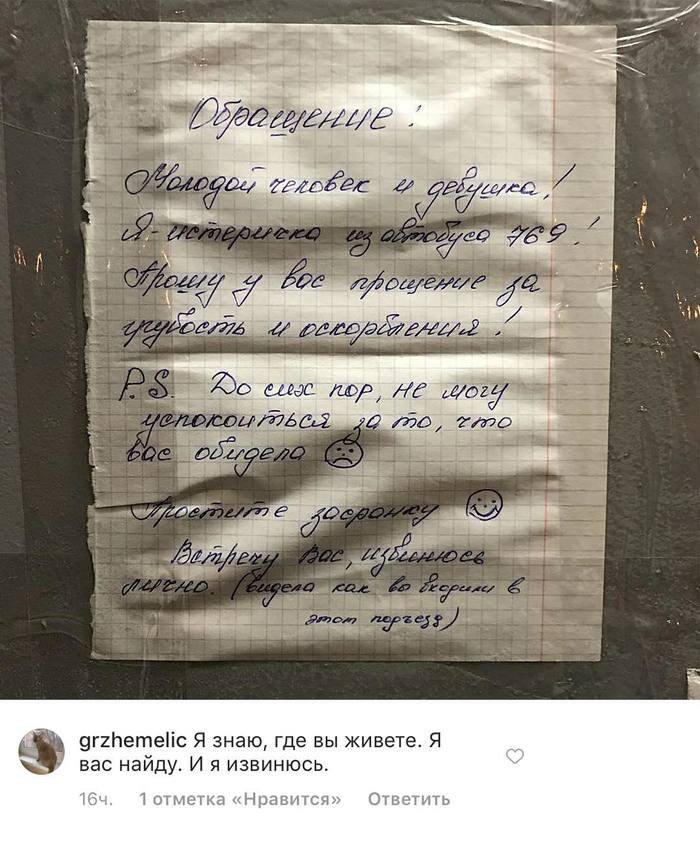 Обращение:
Молодой человек и девушка!
Я-истеричка из автобуса 769!
Прошу у вас прощение за
грубость и оскорбления!
P.S. До сих пор, не могу
успокоиться за то, что
вас обидела
Простите засранку
Встречу Вас, извинюсь
лично. (видела как вы входили в
этот подъезд)
grzhemelic Я знаю, где вы живете. Я
вас найду. И я извинюсь.
16ч. 1 отметка «Нравится» Ответить